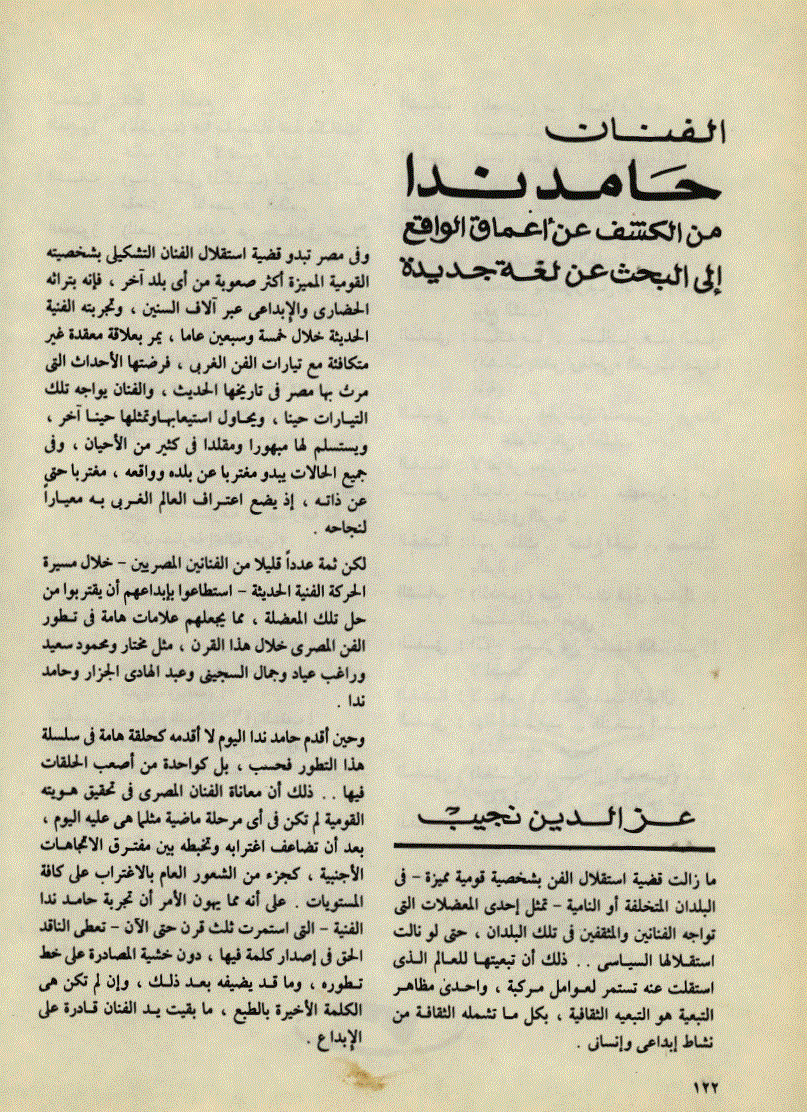 الفنان
حامد ندا
من الكشف عن أعماق الواقع
إلى البحث عن لغة جديدة
عز الدين نجيب
ما زالت قضية استقلال الفن بشخصية قومية مميزة - فى
البلدان المتخلفة أو النامية - تمثل إحدى المعضلات التى
تواجه الفنانين والمثقفين فى تلك البلدان ، حتى لو نالت
استقلالها السياسى . . ذلك أن تبعيتها للعالم الذى
استقلت عنه تستمر لعوامل مركبة ، واحدى مظاهر
التبعية هو التبعيه الثقافية ، بكل ما تشمله الثقافة من
نشاط إبداعى وإنسانى .
وفى مصر تبدو قضية استقلال الفنان التشكيلى بشخصيته
القومية المميزة أكثر صعوبة من أى بلد آخر ، فإنه بتراثه
الحضارى والإبداعى عبر آلاف السنين ، وتجربته الفنية
الحديثة خلال خمسة وسبعين عاما ، يمر بعلاقة معقدة غير
متكافئة مع تيارات الفن الغربى ، فرضتها الأحداث التى
مرت بها مصر فى تاريخها الحديث ، والفنان يواجه تلك
التيارات حينا ، ويحاول استيعابها وتمثلها حينا آخر ،
ويستسلم لها مبهورا ومقلدا فى كثير من الأحيان ، وفى
جميع الحالات يبدو مغتربا عن بلده وواقعه ، مغتربا حتى
عن ذاته ، إذ يضع اعتراف العالم الغربى به معياراً
لنجاحه .
لكن ثمة عدداً قليلا من الفنانين المصريين - خلال مسيرة
الحركة الفنية الحديثة - استطاعوا بإبداعهم أن يقتربوا من
حل تلك المعضلة ، مما يجعلهم علامات هامة فى تطور
الفن المصرى خلال هذا القرن ، مثل مختار ومحمود سعيد
وراغب عياد وجمال السجينى وعبد الهادى الجزار وحامد
ندا .
وحين أقدم حامد ندا اليوم لا أقدمه كحلقة هامة فى سلسلة
هذا التطور فحسب ، بل كواحدة من أصعب الحلقات
فيها . . ذلك أن معاناة الفنان المصرى فى تحقيق هويته
القومية لم تكن فى أى مرحلة ماضية مثلما هى عليه اليوم ،
بعد أن تضاعف اغترابه وتخبطه بين مفترق الاتجاهات
الأجنبية ، كجزء من الشعور العام بالاغتراب على كافة
المستويات . على أنه مما يهون الأمر أن تجربة حامد ندا
الفنية - التى استمرت ثلث قرن حتى الآن - تعطى الناقد
الحق فى إصدار كلمة فيها ، دون خشية المصادرة على خط
تطوره ، وما قد يضيفه بعد ذلك ، وإن لم تكن هى
الكلمة الأخيرة بالطبع ، ما بقيت يد الفنان قادرة على
الإبداع .
١٢٢